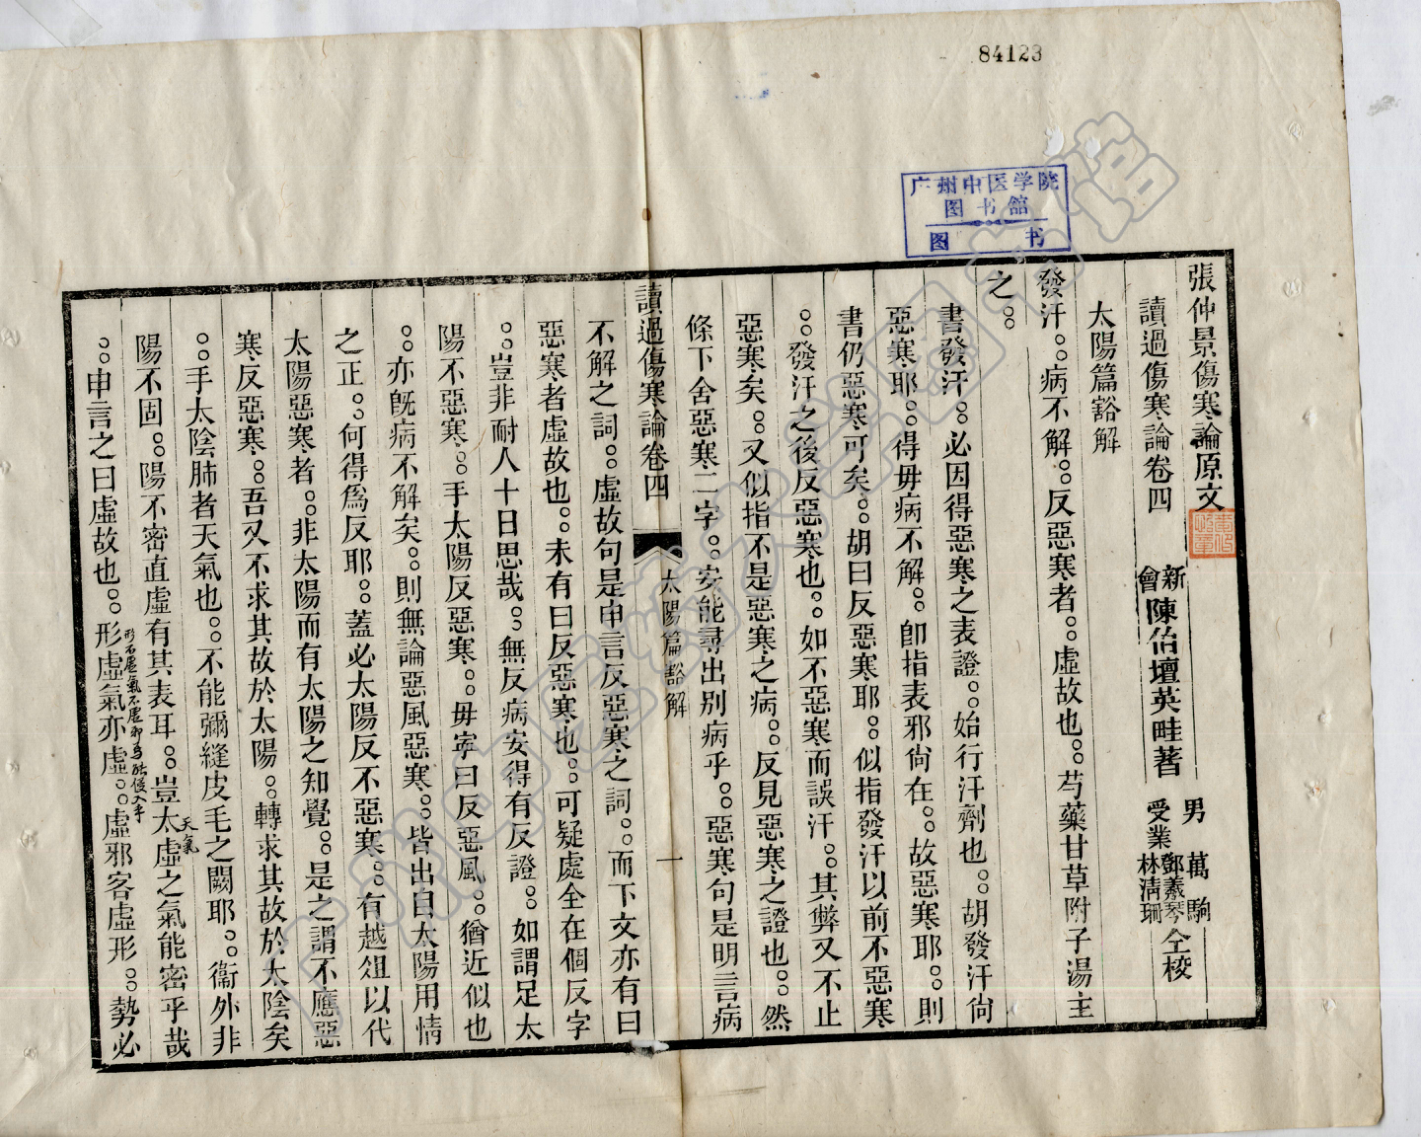 84123
广州中医学院
图书馆
图书
張仲景傷寒論原文
讀過傷寒論卷四
新會陳伯壇英畦著
男萬駒
受業鄧羲琴林清珊仝校
太陽篇豁解
發汗。。病不解。。反惡寒者。。虛故也。。芍藥甘草附子湯主
之。。
書發汗。。必因得惡寒之表證。。始行汗劑也。。胡發汗尙
惡寒耶。。得毋病不解。。卽指表邪尙在。。故惡寒耶。。則
書仍惡寒可矣。。胡曰反惡寒耶。。似指發汗以前不惡寒
。。發汗之後反惡寒也。。如不惡寒而誤汗。。其弊又不止
惡寒矣。。又似指不是惡寒之病。。反見惡寒之證也。。然
條下舍惡寒二字。。安能尋出別病乎。。惡寒句是明言病
讀過傷寒論卷四
太陽篇豁解
一
不解之詞。。虛故句是申言反惡寒之詞。。而下文亦有曰
惡寒者虛故也。。未有曰反惡寒也。。可疑處全在個反字
。。豈非耐人十日思哉。。無反病安得有反證。。如謂足太
陽不惡寒。。手太陽反惡寒。。毋寧曰反惡風。。猶近似也
。。亦旣病不解矣。。則無論惡風惡寒。。皆出自太陽用情
之正。。何得爲反耶。。蓋必太陽反不惡寒。。有越俎以代
太陽惡寒者。。非太陽而有太陽之知覺。。是之謂不應惡
寒反惡寒。。吾又不求其故於太陽。。轉求其故於太陰矣
。。手太陰肺者天氣也。。不能彌縫皮毛之闕耶。。衞外非
陽不固。。陽不密直虛有其表耳。。豈太虛之氣能密乎哉
天氣
。。申言之曰虛故也。。形虛氣亦虛。。虛邪客虛形。。勢必